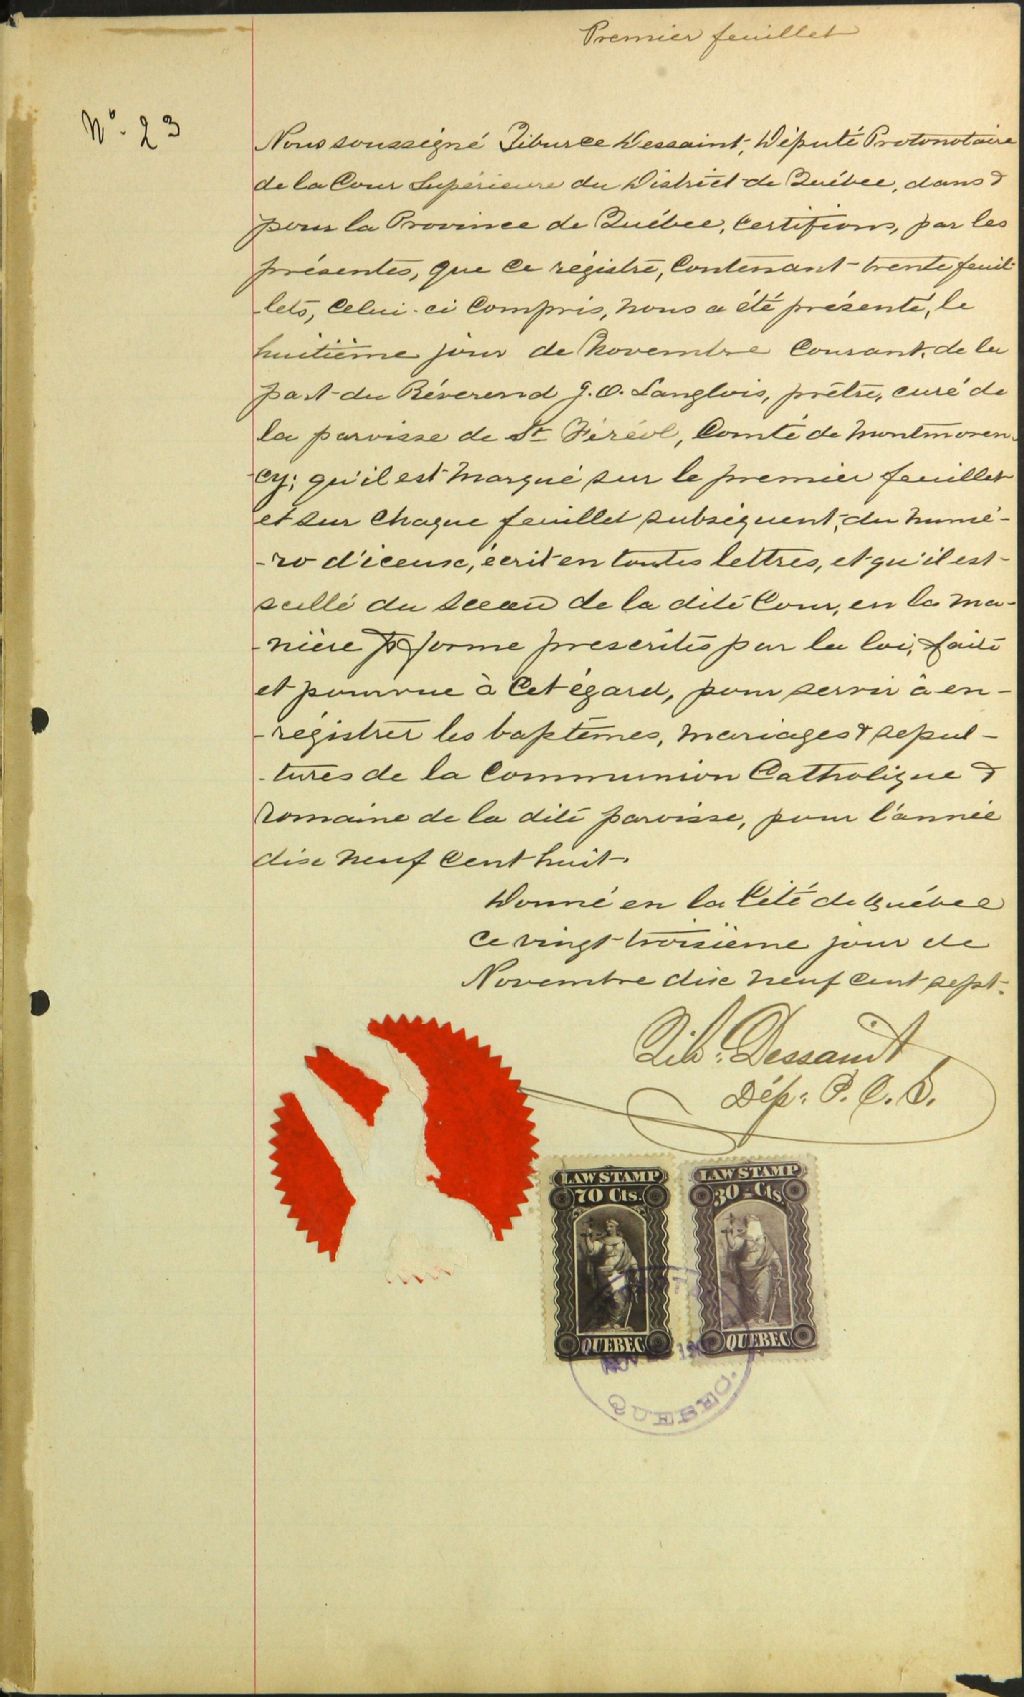 Premier feuillet
No. 23
Nous soussigné Tiburce Dessaint, Député Protonotaire
de la Cour Supérieure du District de Québec, dans &
pour la Province de Québec, certifions, par les
présentes, que ce régistre, contenant trente feuil-
-lets, celui-ci compris, nous a été présenté, le
huitième jour de Novembre courant, de la
part du Révérend J. O. Langlois, prêtre, curé de
la paroisse de St Féréol, Comté de Montmoren-
-cy; qu'il est marqué sur le premier feuillet
et sur chaque feuillet subséquent, du numé-
-ro d'iceux, écrit en toutes lettres, et qu'il est
scellé du sceau de la dite Cour, en la ma-
-nière & forme prescrites par la loi, faite
et pourvue à cet égard, pour servir à en-
-régistrer les baptêmes, mariages & sépul-
-tures de la Communion Catholique &
romaine de la dite paroisse, pour l'année
dix neuf cent huit.
Donné en la Cité de Québec
ce vingt-troisième jour de
Novembre dix neuf cent sept.
Tib. Dessaint
Dép. P. C. S.
LAW STAMP
70 Cts.
QUEBEC
LAW STAMP
30 Cts
QUEBEC
NOV 190
QUEBEC.